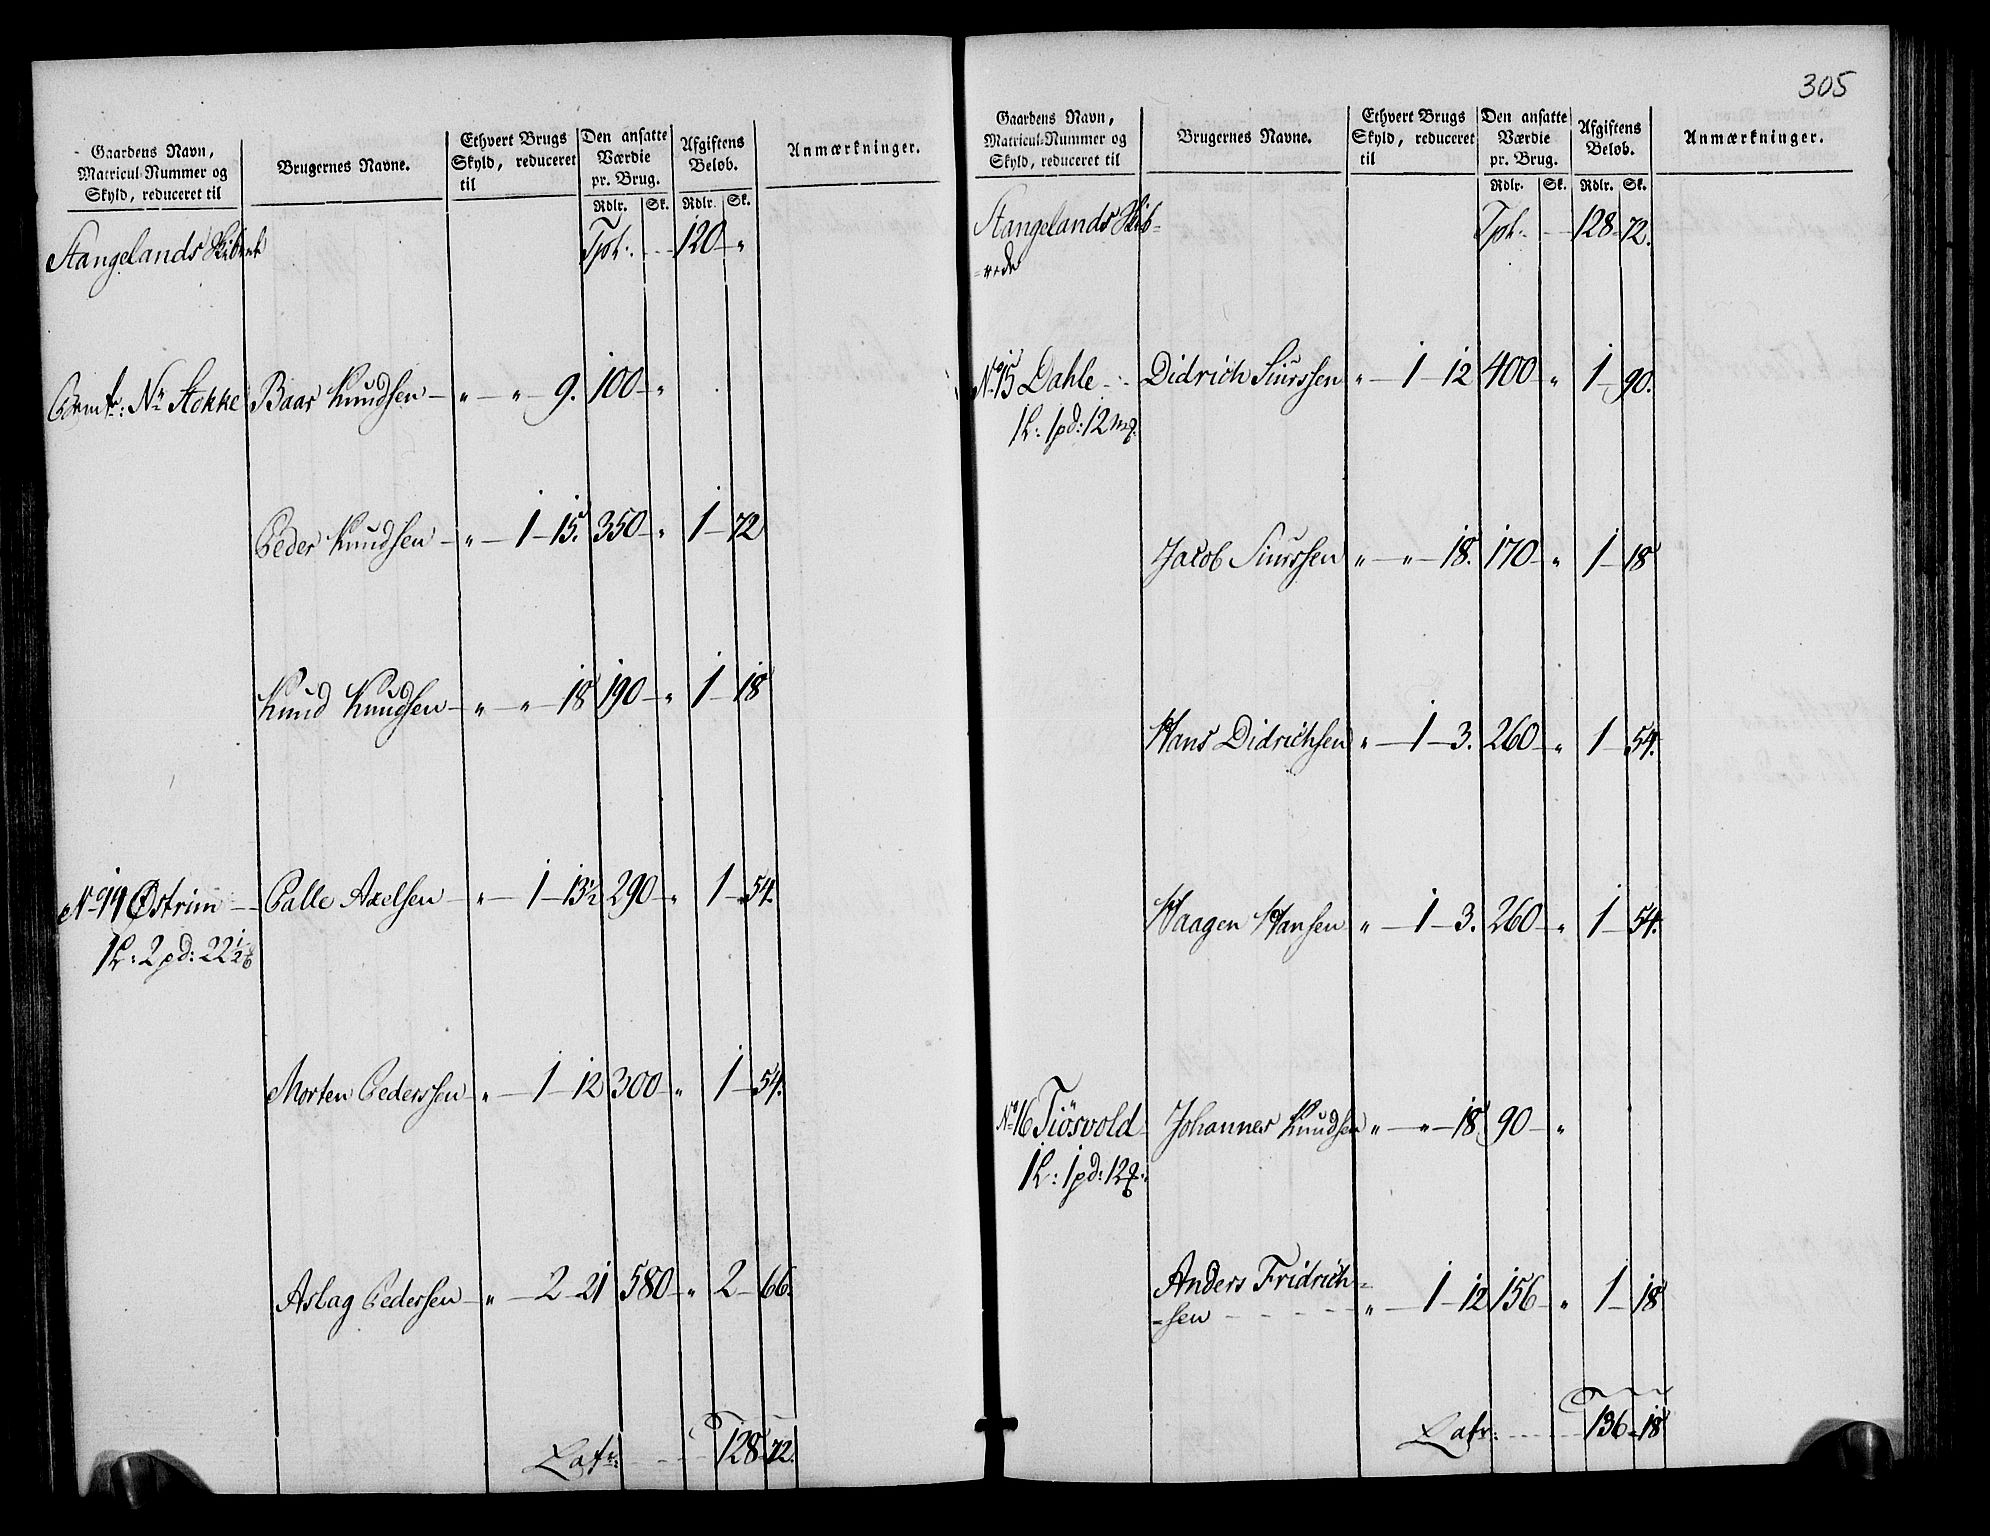 Gaardens Navn, Matricul-Nummer og Skyld, reduceret til | Brugernes Navne. | Ethvert Brugs Skyld, reduceret til | Den ansatte Værdie pr. Brug. | Afgiftens Beløb. | Anmærkninger.
Rdlr. Sk. Rdlr. Sk.
Stangelands Tpt: 120 "
N: Stokke Baar Knudsen " " 9. 100 "
Peder Knudsen " 1 15. 350 " 1 72
Knud Knudsen " " 18 190 " 1 18
No 14 Østrim Palle Axelsen " 1 13½ 290 " 1 54.
1 L: 2 pd: 22½
Morten Pederssen " 1 12 300 " 1 54.
Aslag Pedersen " 2 21 580 " 2 66.
Latr: 128 72.
305
Gaardens Navn, Matricul-Nummer og Skyld, reduceret til | Brugernes Navne. | Ethvert Brugs Skyld, reduceret til | Den ansatte Værdie pr. Brug. | Afgiftens Beløb. | Anmærkninger.
Rdlr. Sk. Rdlr. Sk.
Stangelands Skib- Tpt: 128 72.
-rede
No 15 Dahle Didrich Siurssen " 1 12 400 " 1 90.
1 L: 1 pd: 12 mq.
Jacob Siurssen " " 18. 170 " 1 18
Hans Didrichsen " 1 3. 260 " 1 54.
Haagen Hansen " 1 3. 260 " 1 54.
No 16 Tiösvold Johannes Knudsen " " 18 90 "
1 L: 1 pd: 12
Anders Fridrich-
-sen " 1 12 156 " 1 18
Latr: 136 18